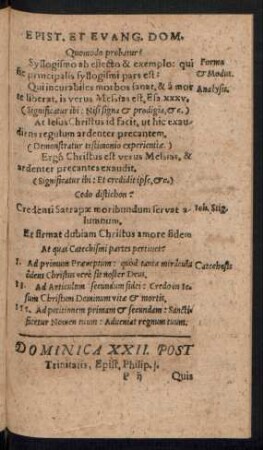 EPIST. ET EVANG. DOM.
Quomodo probatur?
Syllogismo ab effecto & exemplo: qui
sic principalis syllogismi pars est:
Forma
& Modus.
Qui incurabiles morbos sanat, & à mor
te liberat, is verus Messias est, Esa xxxv,
Analysis.
(Significatur ibi: Nisi signa & prodigia, &c.)
At Iesus Christus id facit, ut hic exau-
diens regulum ardenter precantem,
(Demonstratur testimonio experientiæ)
Ergò Christus est verus Messias, &
ardenter precantes exaudit,
(Significatur ibi: Et credidit ipse, &c.)
Cedo distichon?
Credenti Satrapæ moribundum servat a-
lumnum,
Ioh. Stig.
Et firmat dubiam Christus amore fidem
At quas Catechismi partes pertinet?
I. Ad primum Præceptum: quòd tanta miracula
edens Christus verè sit noster Deus,
Catechesis
II. Ad Articulum secundum fidei: Credo in Ie-
sum Christum Dominum vitæ & mortis,
III. Ad petitionem primam & secundam: Sancti-
ficetur Nomen tuum: Adveniat regnum tuum.
DOMINICA XXII. POST
Trinitatis, Epist, Philip. j.
Quia